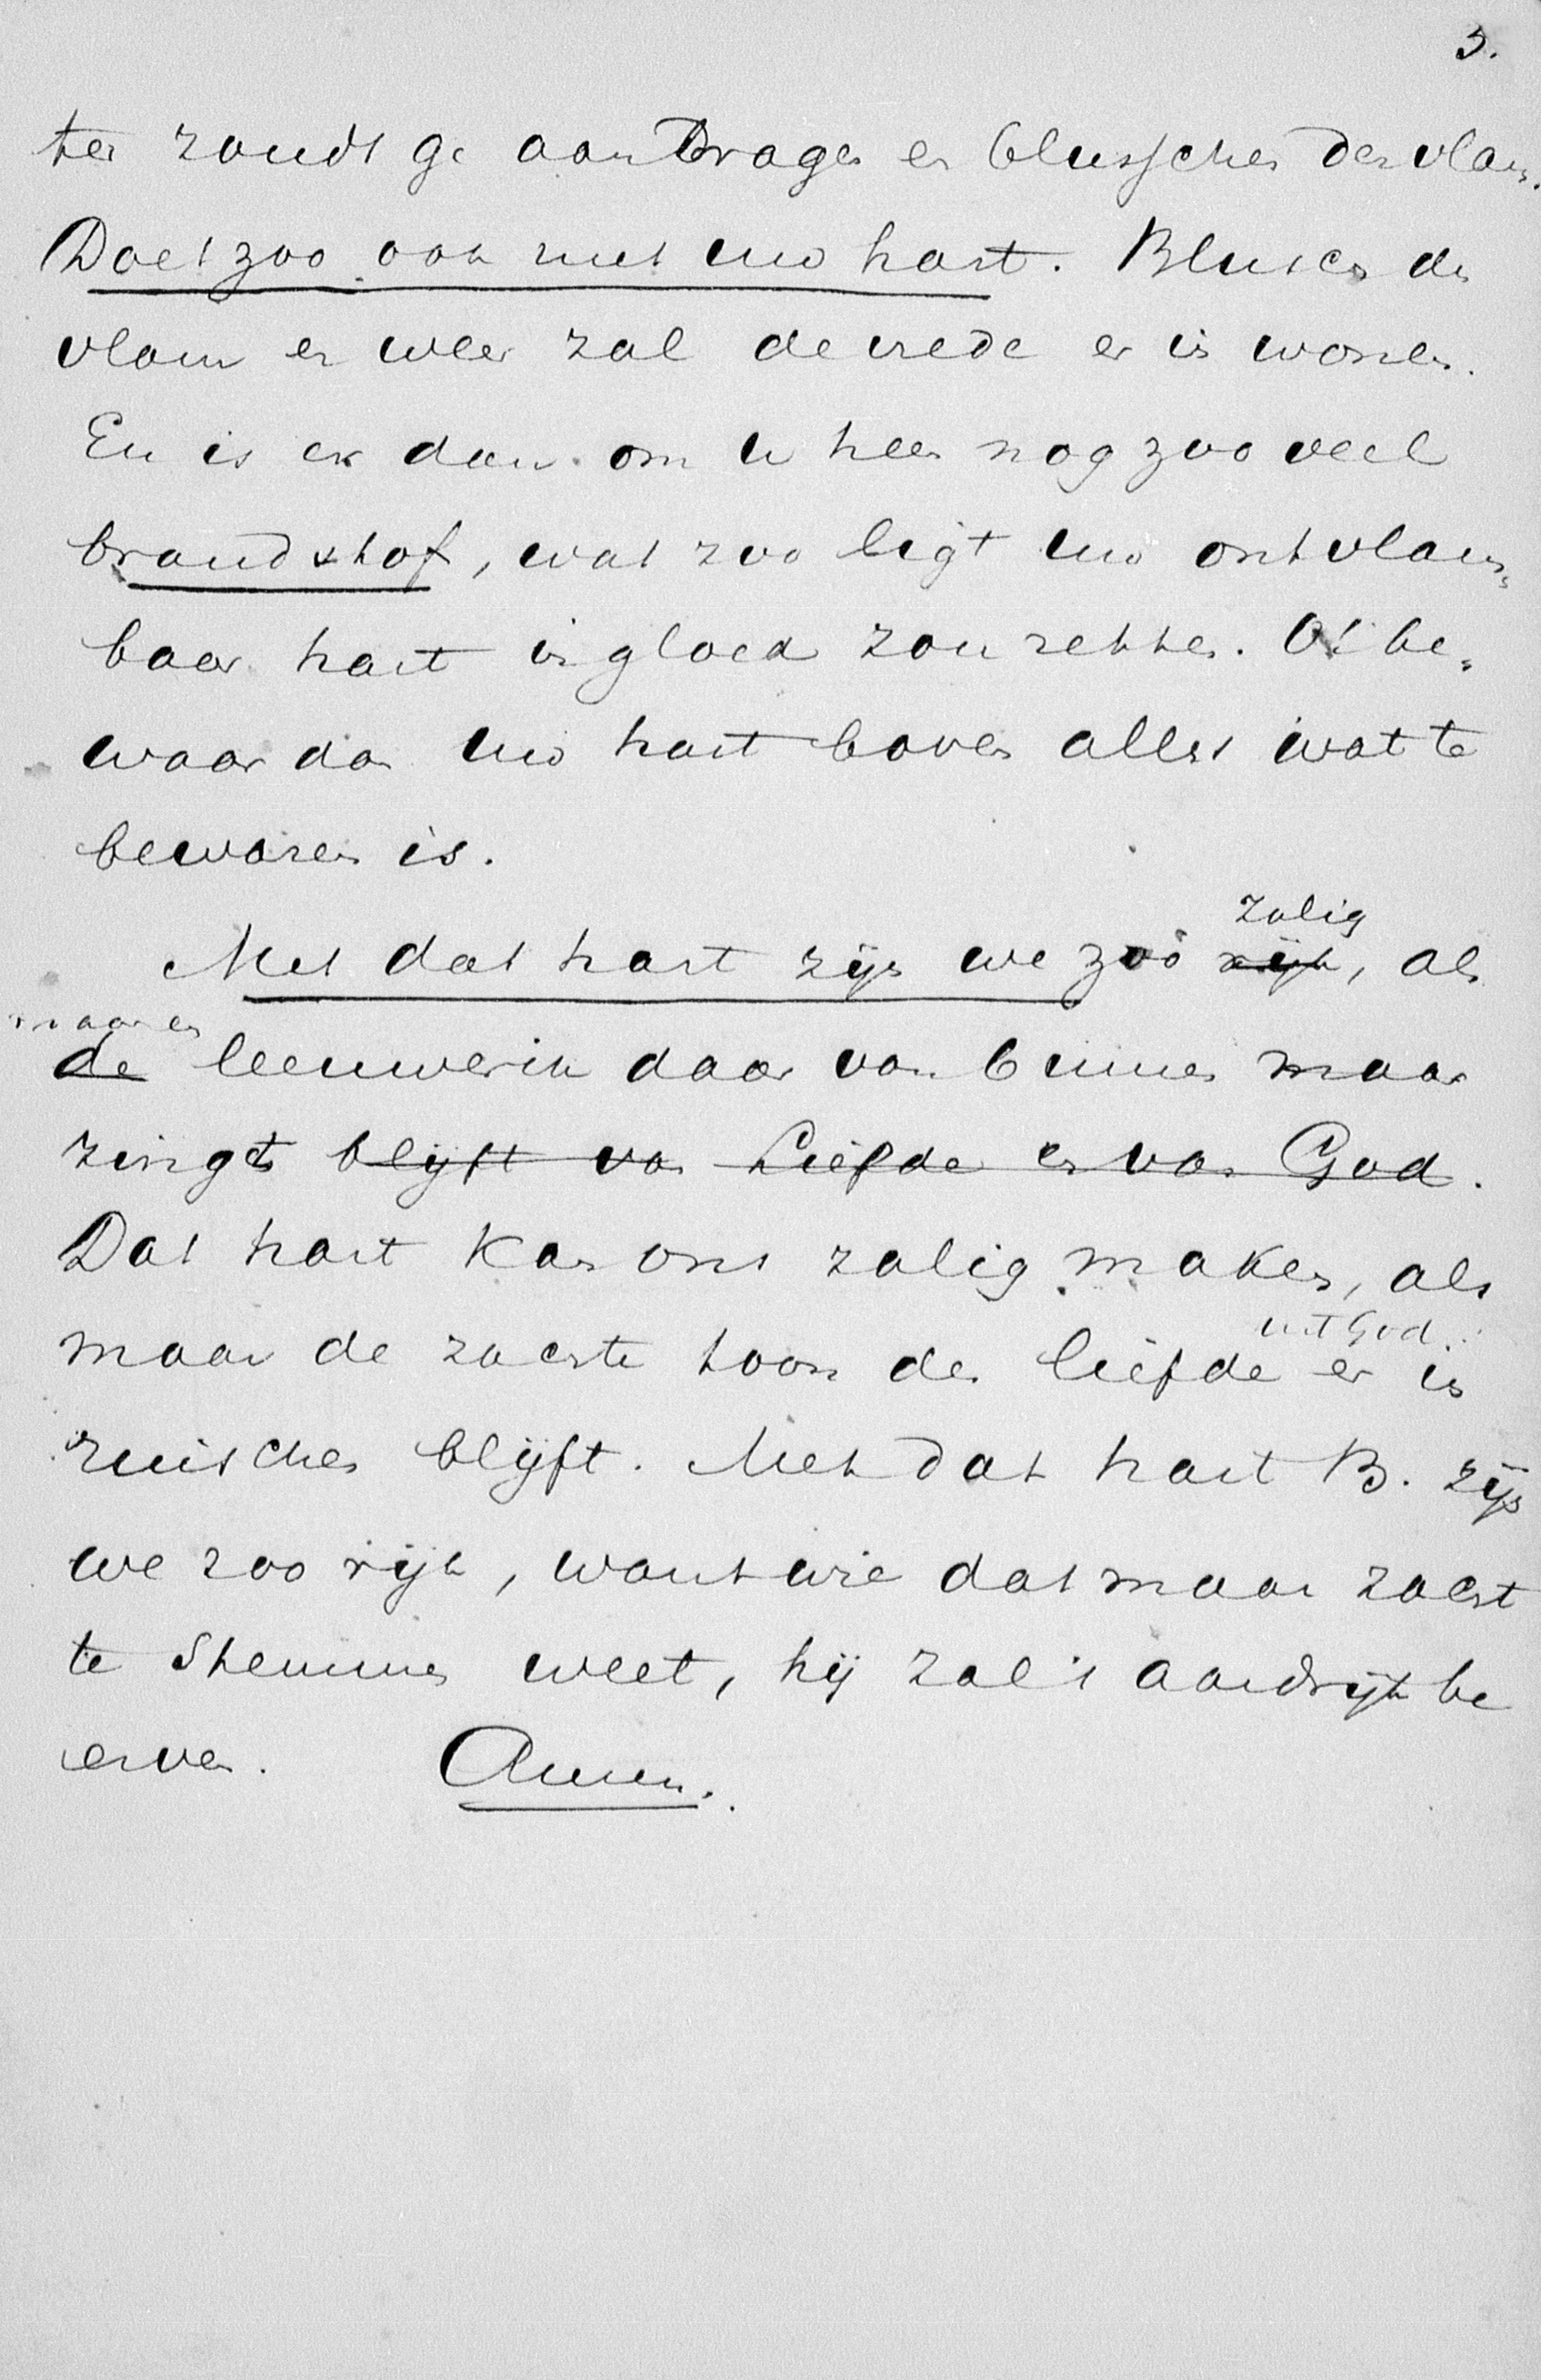 3.
ter zoudt ge aandragen en blusschen den vlam.
Doet zoo ook met uw hart. Blusch den
vlam en weer zal de vrede er in wonen.
En is er dan om u heen nog zooveel
brandstof, wat zoo ligt uw ontvlam=
baar hart in gloed zou zetten. O! be=
waar dan uw hart boven alles wat te
bewaren is.
zalig
Met dat hart zijn we zoo rijk, als
maar een
de leeuwerik daar van binnen maar
zingt blijft van Liefde en van God.
Dat hart kan ons zalig maken, als
uit God
maar de zachte toon der liefde er in
ruischen blijft. Met dat hart B. zijn
we zoo rijk, want wie dat maar zacht
te stemmen weet, hij zal 't aardrijk be
erven. Amen.